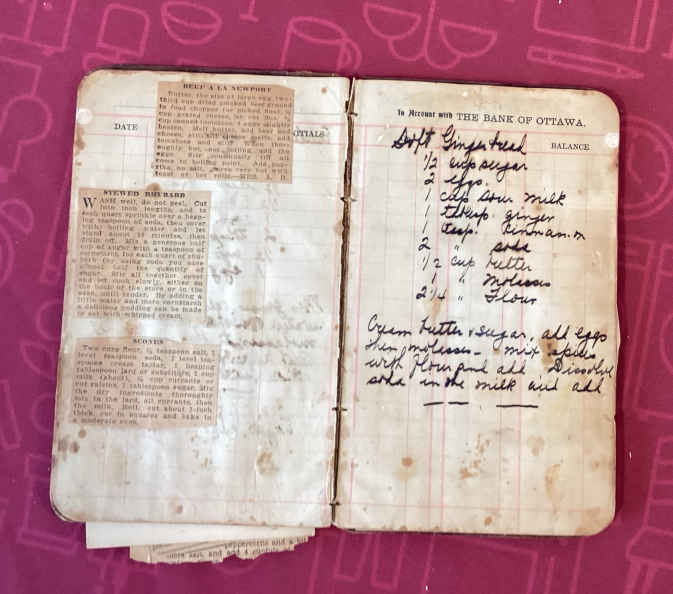 DATE
BEEF A LA NEWPORT
Butter, the size of large egg, two-
third cup dried smoked beef ground
in food chopper (or picked fine),
cup grated cheese,
cup canned tomatoes, 4 eggs slightly
beaten. Melt butter, add beef and
cheese, stir
tomatoes and stir. When thor-
oughly hot, boiling add the
eggs. Stir continually till all
comes to boiling point. Add
no salt, serve very hot with
toast or hot rolls.
STEWED RHUBARB
WASH well, do not peel. Cut
into inch lengths, and to
each quart sprinkle over a heap-
ing teaspoon of soda, then cover
with boiling water and let
stand about 15 minutes, then
drain off. Mix a generous half
cup of sugar with a teaspoon of
cornstarch, for each quart of rhu-
barb (by using soda you save
almost half the quantity of
sugar. Stir all together over
and let cook slowly, either on
the back of the stove or in the
oven, until tender. By adding a
little water and more cornstarch
a delicious pudding can be made
to eat with whipped cream.
SCONES
Two cups flour, ½ teaspoon salt, 1
level teaspoon soda, 2 level tea-
spoons cream tartar, 1 heaping
tablespoon lard or substitute, 1 cup
milk (about), ½ cup currants or
cut raisins, 1 tablespoon sugar. Mix
the dry ingredients thoroughly
rub in the lard, all currants, then
the milk. Roll out about 1-inch
thick, cut in squares and bake in
a moderate oven.
peppercorns and a bit
more salt, and add 4
In Account with THE BANK OF OTTAWA.
BALANCE
Soft Gingerbread
1/2 cup sugar
2 eggs.
1 cup sour milk
1 ginger
1 tesp. Cinnamon
2 " soda
1/2 cup butter
" Molasses
2 1/4 " Flour
Cream butter & sugar, add eggs
then molasses - mix spices
with flour and add Dissolve
soda in the milk and add